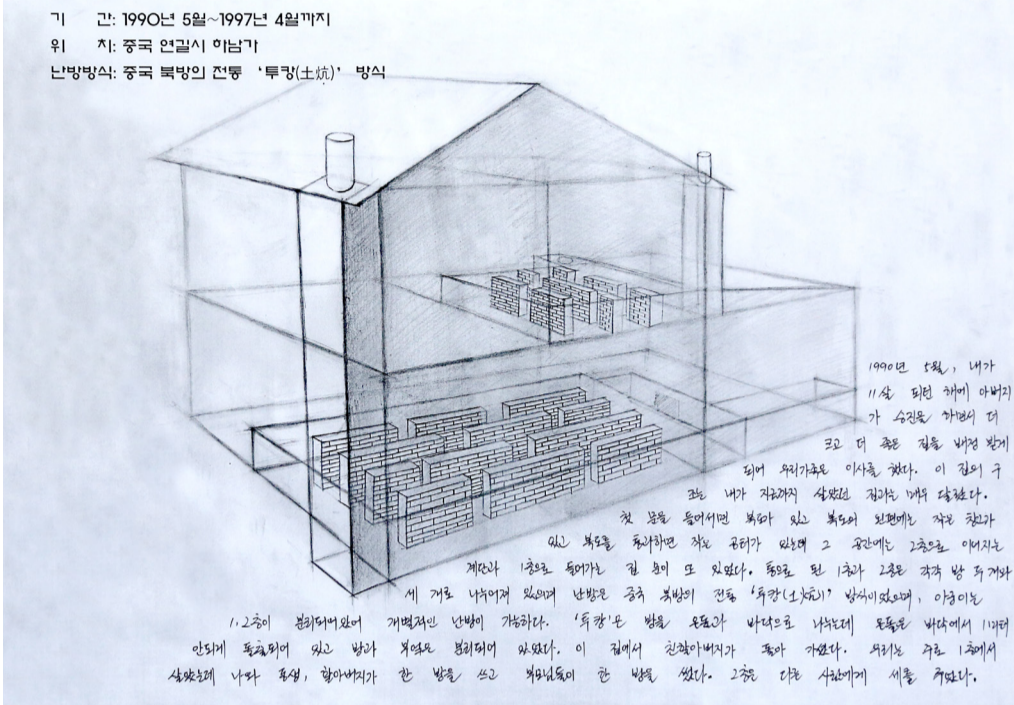 기 간: 1990년 5월~1997년 4월까지
위 치: 중국 연길시 하남가
난방방식: 중국 북방의 전통 '투캉(土炕)' 방식
1990년 5월, 내가
11살 되던 해에 아버지
가 승진을 하면서 더
크고 더 좋은 집을 배정 받게
되어 우리가족은 이사를 했다. 이 집의 구
조는 내가 지금까지 살았던 집과는 매우 달랐다.
첫 문을 들어서면 복도가 있고 복도의 왼편에는 작은 창고가
있고 복도를 통과하면 작은 공터가 있는데 그 공간에는 2층으로 이어지는
계단과 1층으로 들어가는 집 문이 또 있었다. 통으로 된 1층과 2층은 각각 방 두개와
세 개로 나누어져 있으며 난방은 중국 북방의 전통 '투캉(土炕)' 방식이었으며, 아궁이는
1, 2층이 분리되어있어 개별적인 난방이 가능하다. '투캉'은 방을 온돌과 바닥으로 나누는데 온돌은 바닥에서 1미터
안되게 돌출되어 있고 방과 부엌은 분리되어 있었다. 이 집에서 친할아버지가 돌아 가셨다. 우리는 주로 1층에서
살았는데 나와 동생, 할아버지가 한 방을 쓰고 부모님들이 한 방을 썼다. 2층은 다른 사람에게 세를 주었다.